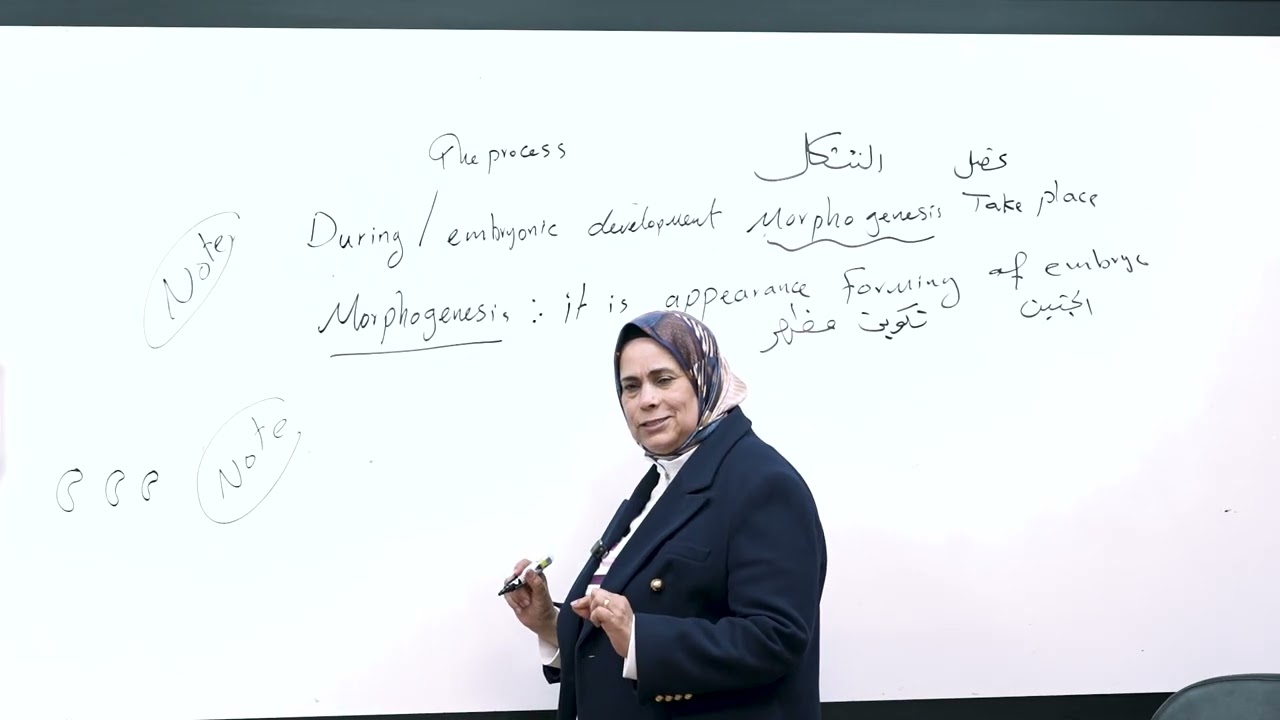 The process التشكل تحصل
Note During / embryonic development Morphogenesis Take place
Morphogenesis : it is appearance Forming of embryo
تكوين مظهر الجنين
Note